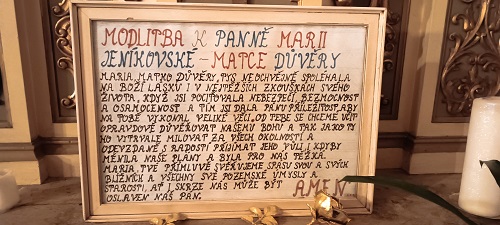 MODLITBA K PANNĚ MARII
JENÍKOVSKÉ - MATCE DŮVĚRY
MARIA, MATKO DŮVĚRY, TYS NEOCHVĚJNĚ SPOLÉHALA
NA BOŽÍ LÁSKU I V NEJTĚŽŠÍCH ZKOUŠKÁCH SVÉHO
ŽIVOTA, KDYŽ JSI POCIŤOVALA NEBEZPEČÍ, BEZMOCNOST
A OSAMOCENOST A TÍM JSI DALA PÁNU PŘÍLEŽITOST, ABY
NA TOBĚ VYKONAL VELIKÉ VĚCI. OD TEBE SE CHCEME UČIT
OPRAVDOVĚ DŮVĚŘOVAT NAŠEMU BOHU A TAK JAKO TY
HO VYTRVALE MILOVAT ZA VŠECH OKOLNOSTÍ A
ODEVZDANĚ S RADOSTÍ PŘIJÍMAT JEHO VŮLI, I KDYBY
MĚNILA NAŠE PLÁNY A BYLA PRO NÁS TĚŽKÁ.
MARIA, TVÉ PŘÍMLUVĚ SVĚŘUJEME SPÁSU SVOU A SVÝCH
BLIŽNÍCH A VŠECHNY SVÉ POZEMSKÉ ÚMYSLY A
STAROSTI, AŤ I SKRZE NÁS MŮŽE BÝT AMEN
OSLAVEN NÁŠ PÁN.